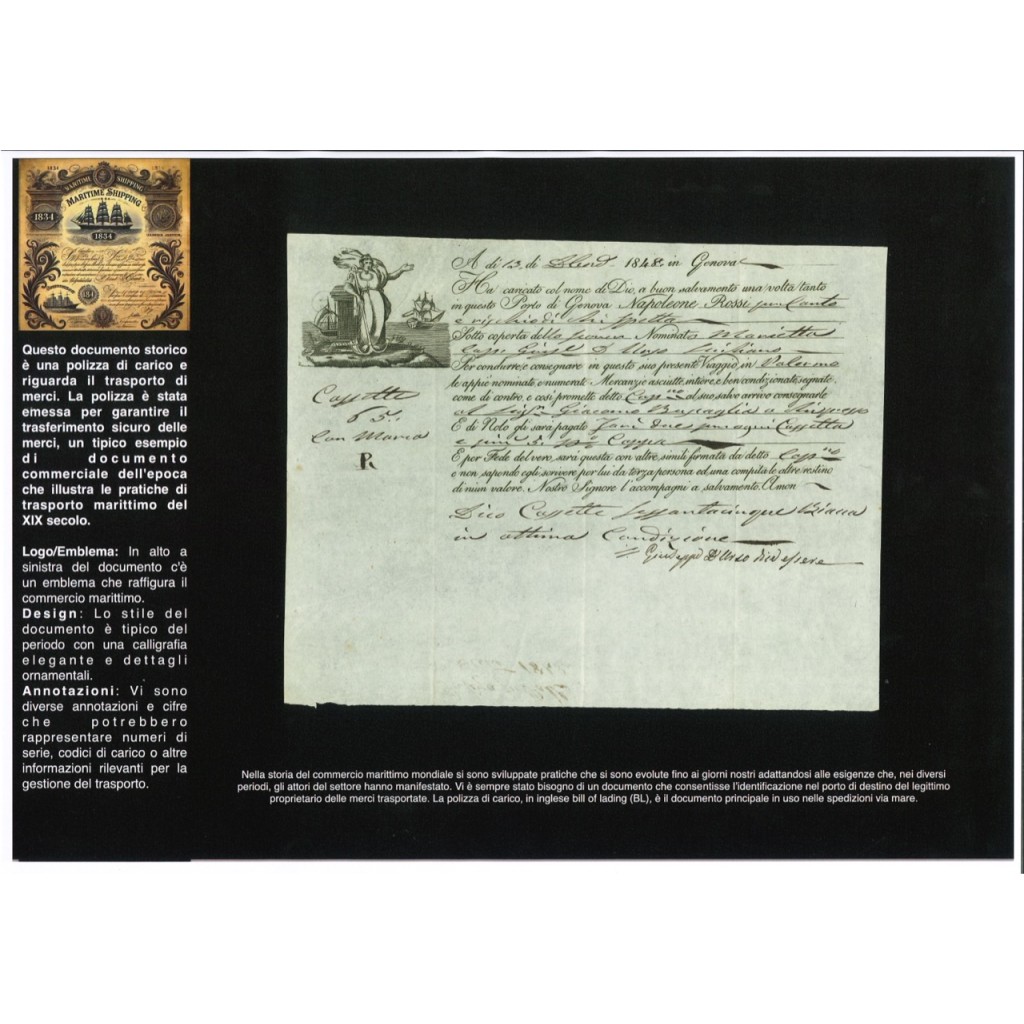 MARITIME SHIPPING
MARITIME SHIPPING
1834
1834
Questo documento storico
è una polizza di carico e
riguarda il trasporto di
merci. La polizza è stata
emessa per garantire il
trasferimento sicuro delle
merci, un tipico esempio
di documento
commerciale dell'epoca
che illustra le pratiche di
trasporto marittimo del
XIX secolo.
Logo/Emblema: In alto a
sinistra del documento c'è
un emblema che raffigura il
commercio marittimo.
Design: Lo stile del
documento è tipico del
periodo con una calligrafia
elegante e dettagli
ornamentali.
Annotazioni: Vi sono
diverse annotazioni e cifre
che potrebbero
rappresentare numeri di
serie, codici di carico o altre
informazioni rilevanti per la
gestione del trasporto.
A di 13, di 1848. in Genova
Ha caricato col nome di Dio, a buon salvamento una volta tanto
in questo Porto di Genova Napoleone Rossi per Conto
e rischio di chi spetta
Sotto coperta della Nominata Marietta
Per condurre, e consegnare in questo suo presente Viaggio, in Palermo
le appiè nominate, e numerate Mercanzie asciutte, intiere, e ben condizionate, segnate
come di contro, e così promette detto Cap.no al suo salvo arrivo consegnarle
al Sig.r Giacomo
E di Nolo gli sarà pagato Tarì due per ogni Cassetta
e più 5. p% Cappa
E per Fede del vero, sarà questa con altre simili firmata da detto Cap.no
e non sapendo egli scrivere per lui da terza persona ed una compita le altre restino
di niun valore. Nostro Signore l'accompagni a salvamento. Amen
Dico Cassette Sessantacinque
in ottima Condizione
Giuseppe D'Urso dico essere
Cassette
65.
Con Marca
R
Nella storia del commercio marittimo mondiale si sono sviluppate pratiche che si sono evolute fino ai giorni nostri adattandosi alle esigenze che, nei diversi
periodi, gli attori del settore hanno manifestato. Vi è sempre stato bisogno di un documento che consentisse l'identificazione nel porto di destino del legittimo
proprietario delle merci trasportate. La polizza di carico, in inglese bill of lading (BL), è il documento principale in uso nelle spedizioni via mare.